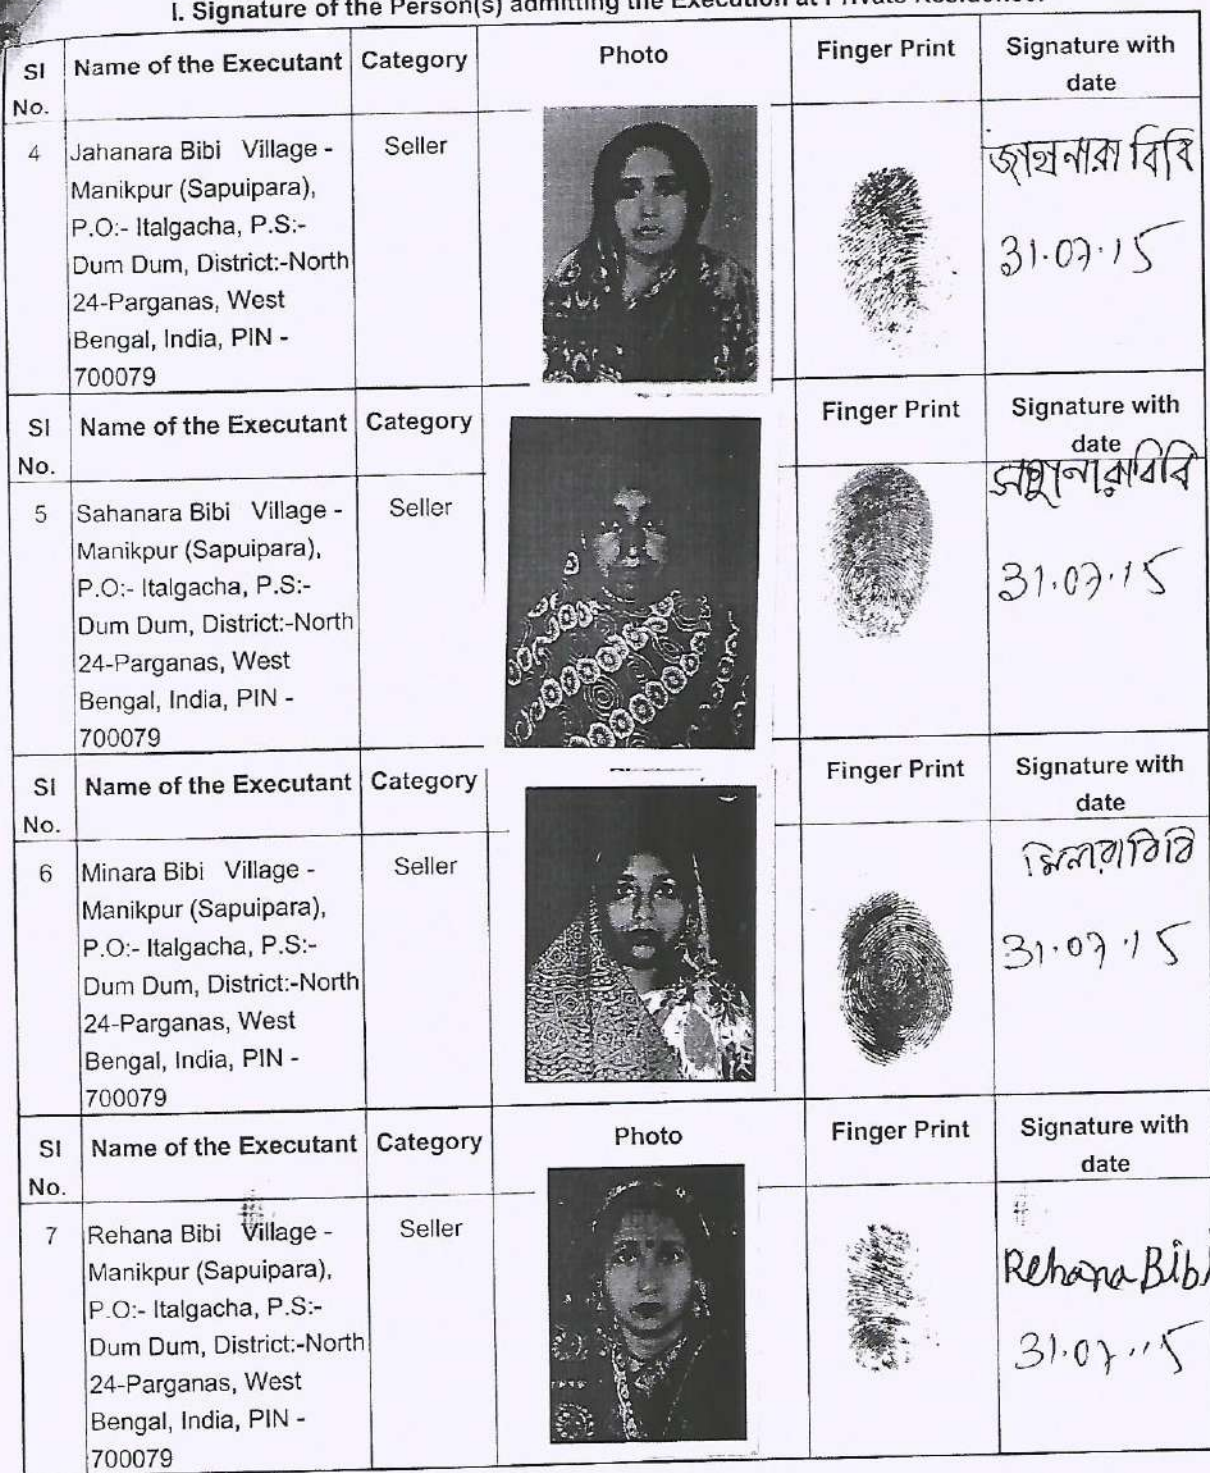 I. Signature of the Person(s) admitting the Execution at Private Residence.
Sl No. Name of the Executant Category Photo Finger Print Signature with date
4 Jahanara Bibi Village - Seller
Manikpur (Sapuipara),
P.O:- Italgacha, P.S:-
Dum Dum, District:-North
24-Parganas, West
Bengal, India, PIN -
700079
জাহানারা বিবি
31.07.15
Sl No. Name of the Executant Category Finger Print Signature with date
5 Sahanara Bibi Village - Seller
Manikpur (Sapuipara),
P.O:- Italgacha, P.S:-
Dum Dum, District:-North
24-Parganas, West
Bengal, India, PIN -
700079
বিবি
31.07.15
Sl No. Name of the Executant Category Finger Print Signature with date
6 Minara Bibi Village - Seller
Manikpur (Sapuipara),
P.O:- Italgacha, P.S:-
Dum Dum, District:-North
24-Parganas, West
Bengal, India, PIN -
700079
বিবি
31.07.15
Sl No. Name of the Executant Category Photo Finger Print Signature with date
7 Rehana Bibi Village - Seller
Manikpur (Sapuipara),
P.O:- Italgacha, P.S:-
Dum Dum, District:-North
24-Parganas, West
Bengal, India, PIN -
700079
Rehana Bibi
31.07.15